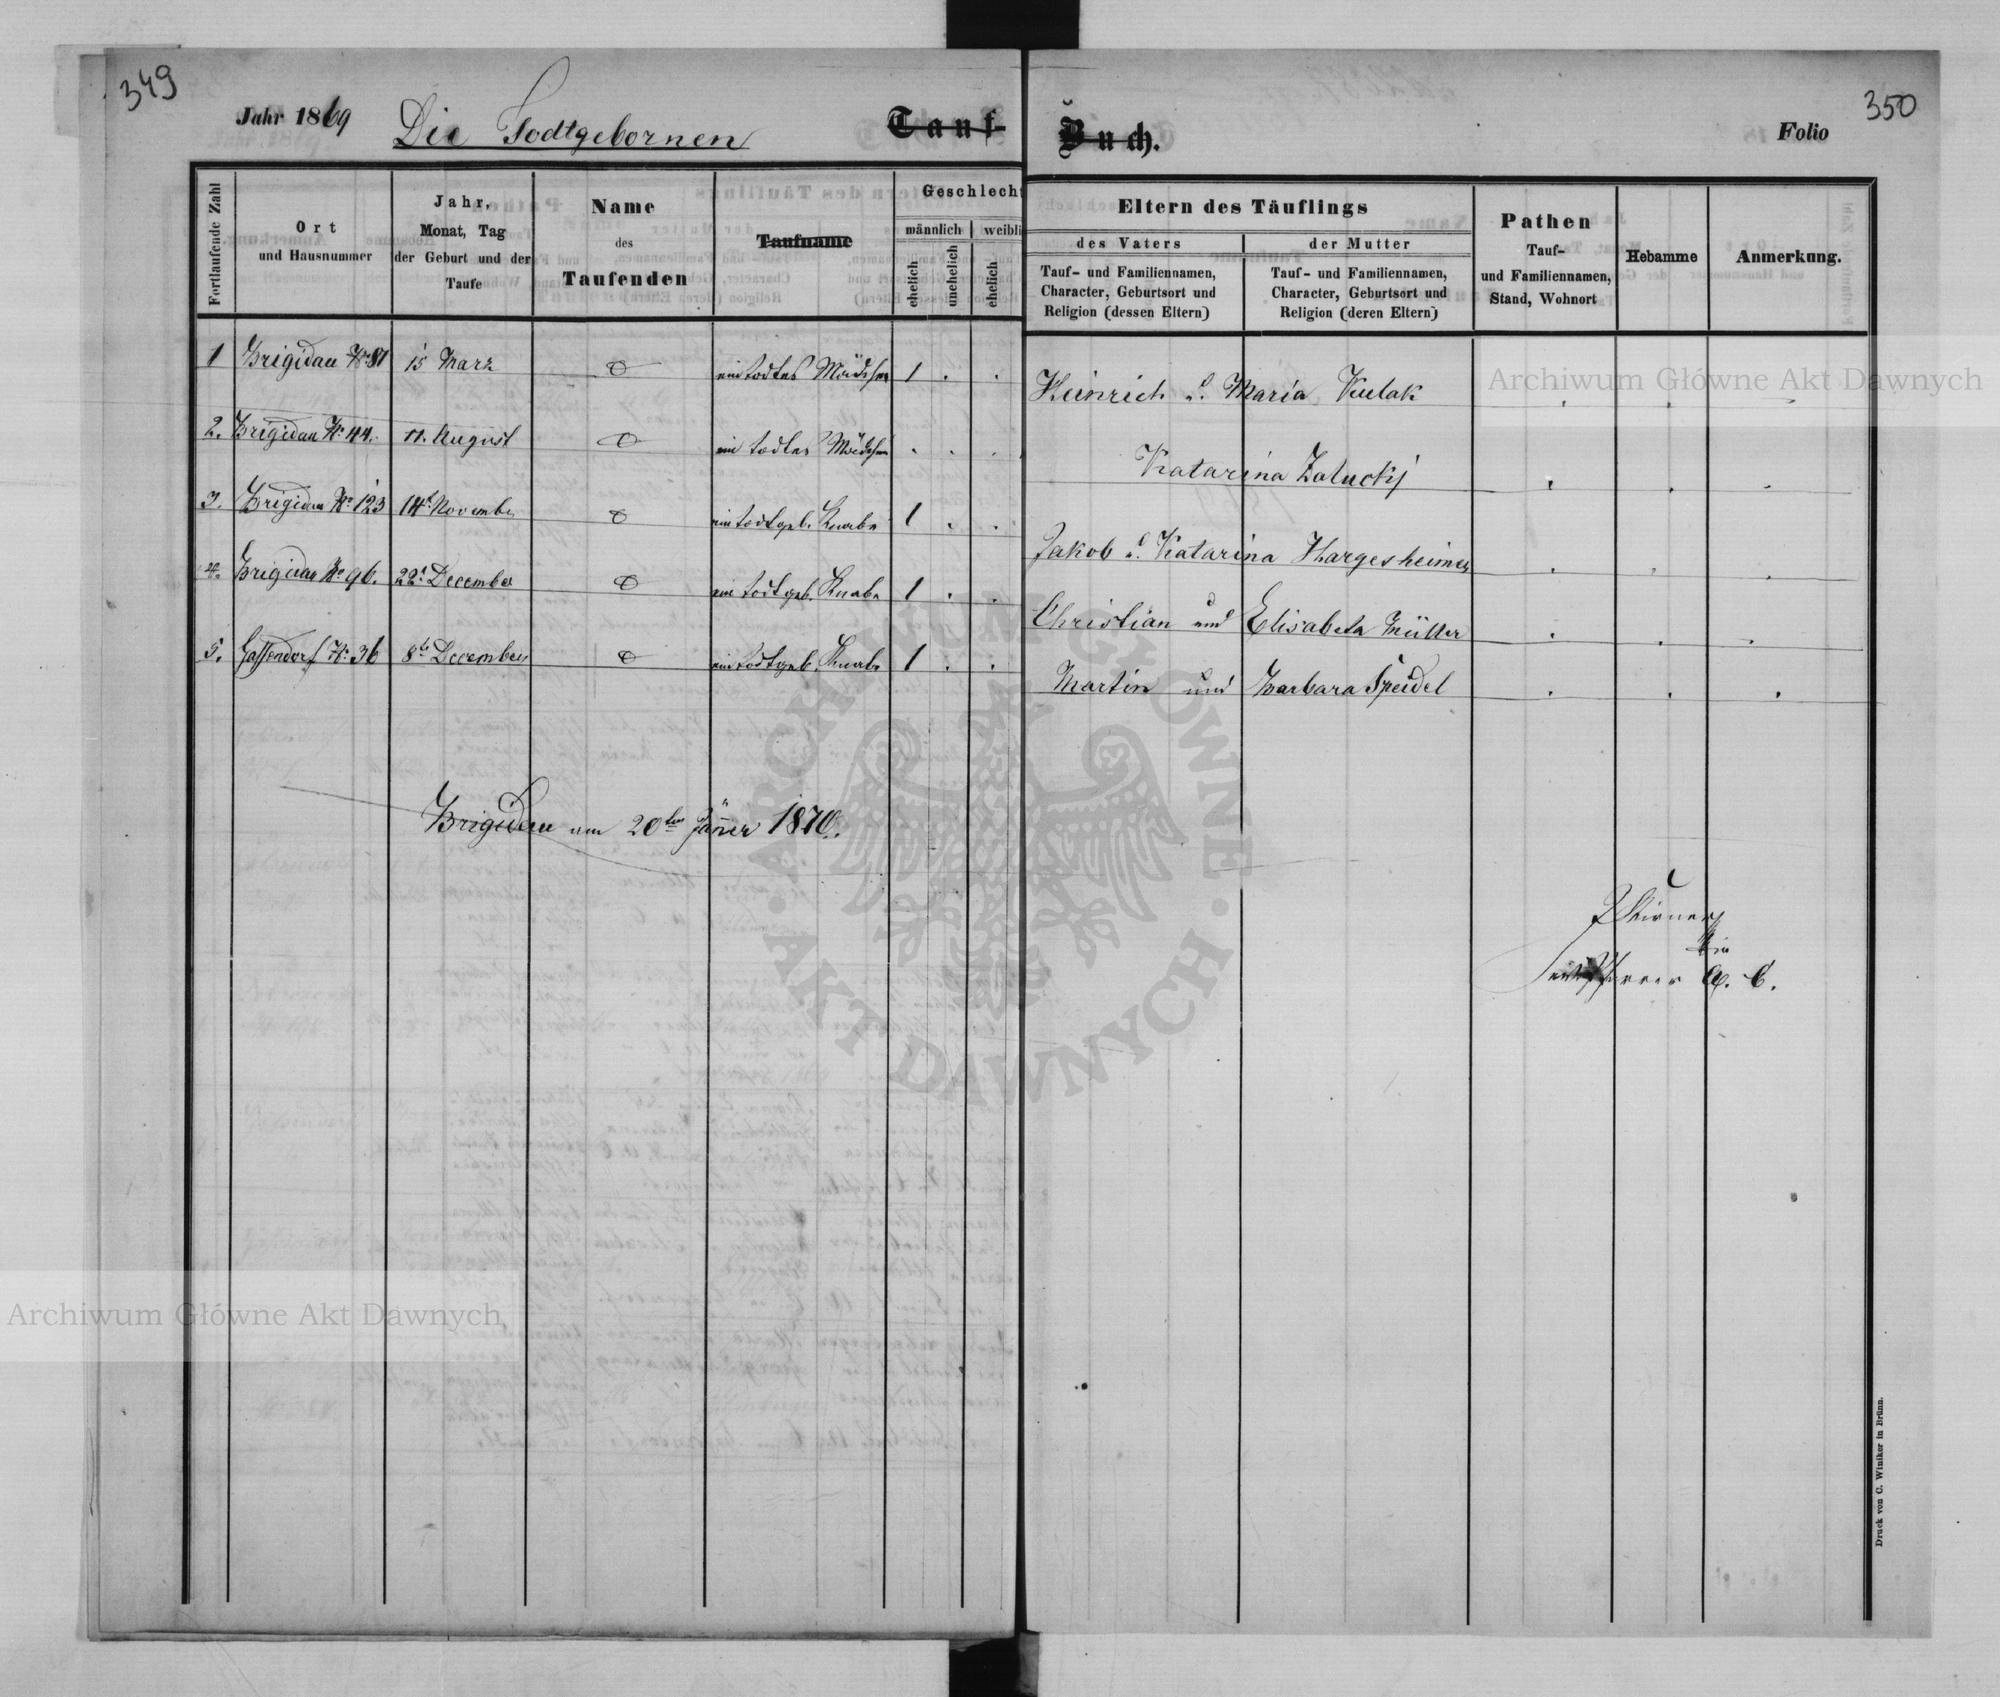 349
350
Jahr 1869 Die Todtgebornen Tauf Buch. Folio
Fortlaufende Zahl
Ort und Hausnummer
Jahr, Monat, Tag der Geburt und der Taufe
Name des Taufenden
Taufname
Geschlecht
männlich weibli
ehelich unehelich ehelich
Eltern des Täuflings
des Vaters der Mutter
Tauf- und Familiennamen, Character, Geburtsort und Religion (dessen Eltern)
Tauf- und Familiennamen, Character, Geburtsort und Religion (deren Eltern)
Pathen
Tauf- und Familiennamen, Stand, Wohnort
Hebamme
Anmerkung.
1 Brigidau No 81 15 Marz ein todtes Mädchen 1 . . Heinrich u. Maria Kulak
2. Brigidau No 44. 11. August ein todtes Mädchen . . . Katarina Zalucki
3. Brigidau No 123 14t November ein todtgeb. Knabe 1 . . Jakob u. Katarina Hargesheimer
4. Brigidau No 96. 22t December ein todtgeb. Knabe 1 . . Christian und Elisabeta Müller
5. Gassendorf No 36 8te December ein todtgeb. Knabe 1 . . Martin und Barbara Speidel
Brigidau am 20ten Jäner 1870.
A. C.
Druck von C. Winiker in Brünn.
Archiwum Główne Akt Dawnych
Archiwum Główne Akt Dawnych
ARCHIWUM GŁÓWNE · AKT DAWNYCH ·